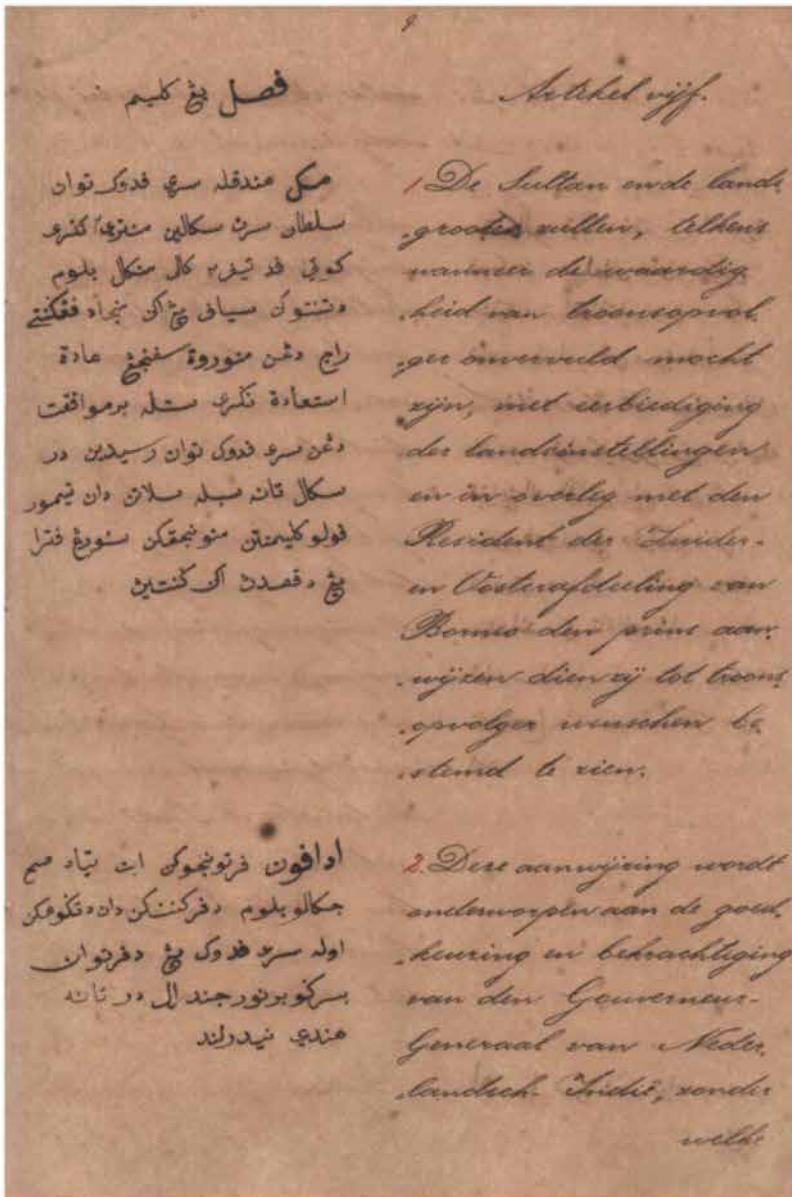 9
فصل يڠ كليم
مك هندقله سري فدوك توان
سلطان سرت سكالين منتري٢ نكري
كوتي فد تيف٢ كال متكل بلوم
دتنتوكن سياف يڠ اكن منجاد فڠكنتي
راج دڠن منوروة سفنجڠ عادة
استعادة نكري ستله برموافقت
دڠن سري فدوك توان رسيدين در
سكال تانه سبله سلاتن دان تيمور
فولو كليمنتن منونجقكن سئورڠ فترا
يڠ دقصدڽ اكن كنتين
ادافون فرتونجوكن ايت تياد صح
جكالو بلوم دفركننكن دان دتكوهكن
اوله سري فدوك يڠ دفرتوان
بسر كوبرنور جندرال در تانه
هندي نيدرلند
Artikel vijf.
1 De Sultan en de lands-
-grooten zullen, telkens
wanneer de waardig-
-heid van troonsopvol-
-ger onvervuld mocht
zijn, met eerbiediging
der landsinstellingen
en in overleg met den
Resident der Zuider-
en Oosterafdeeling van
Borneo den prins aan-
-wijzen dien zij tot troons-
-opvolger wenschen be-
-stemd te zien.
2. Deze aanwijzing wordt
onderworpen aan de goed-
-keuring en bekrachtiging
van den Gouverneur-
Generaal van Neder-
-landsch-Indië, zonder
welke